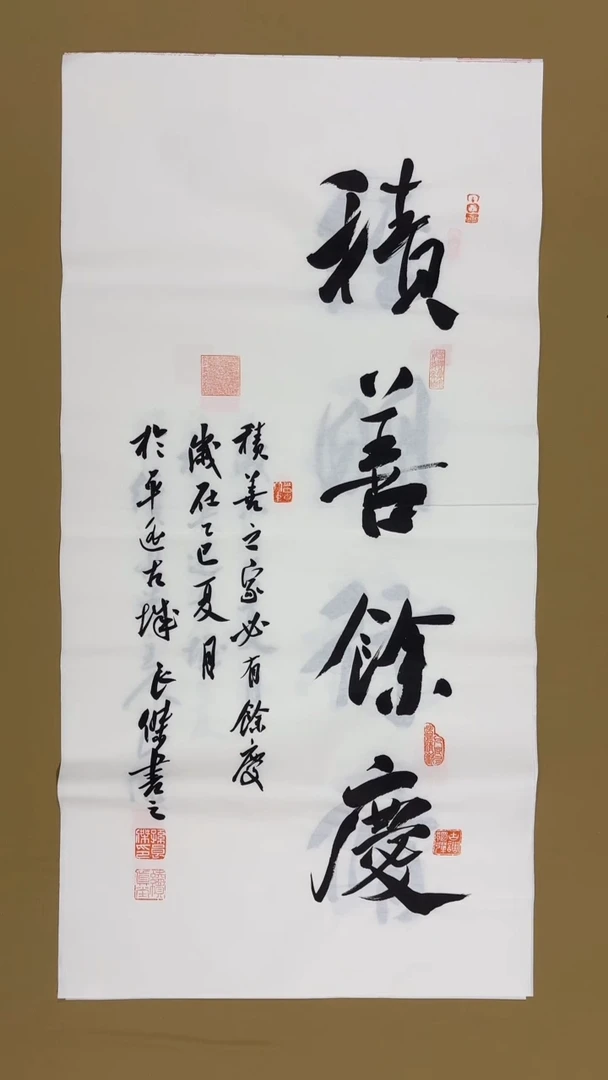 積善餘慶
積善之家必有餘慶
歲在乙巳夏月
於平遙古城長傑書之